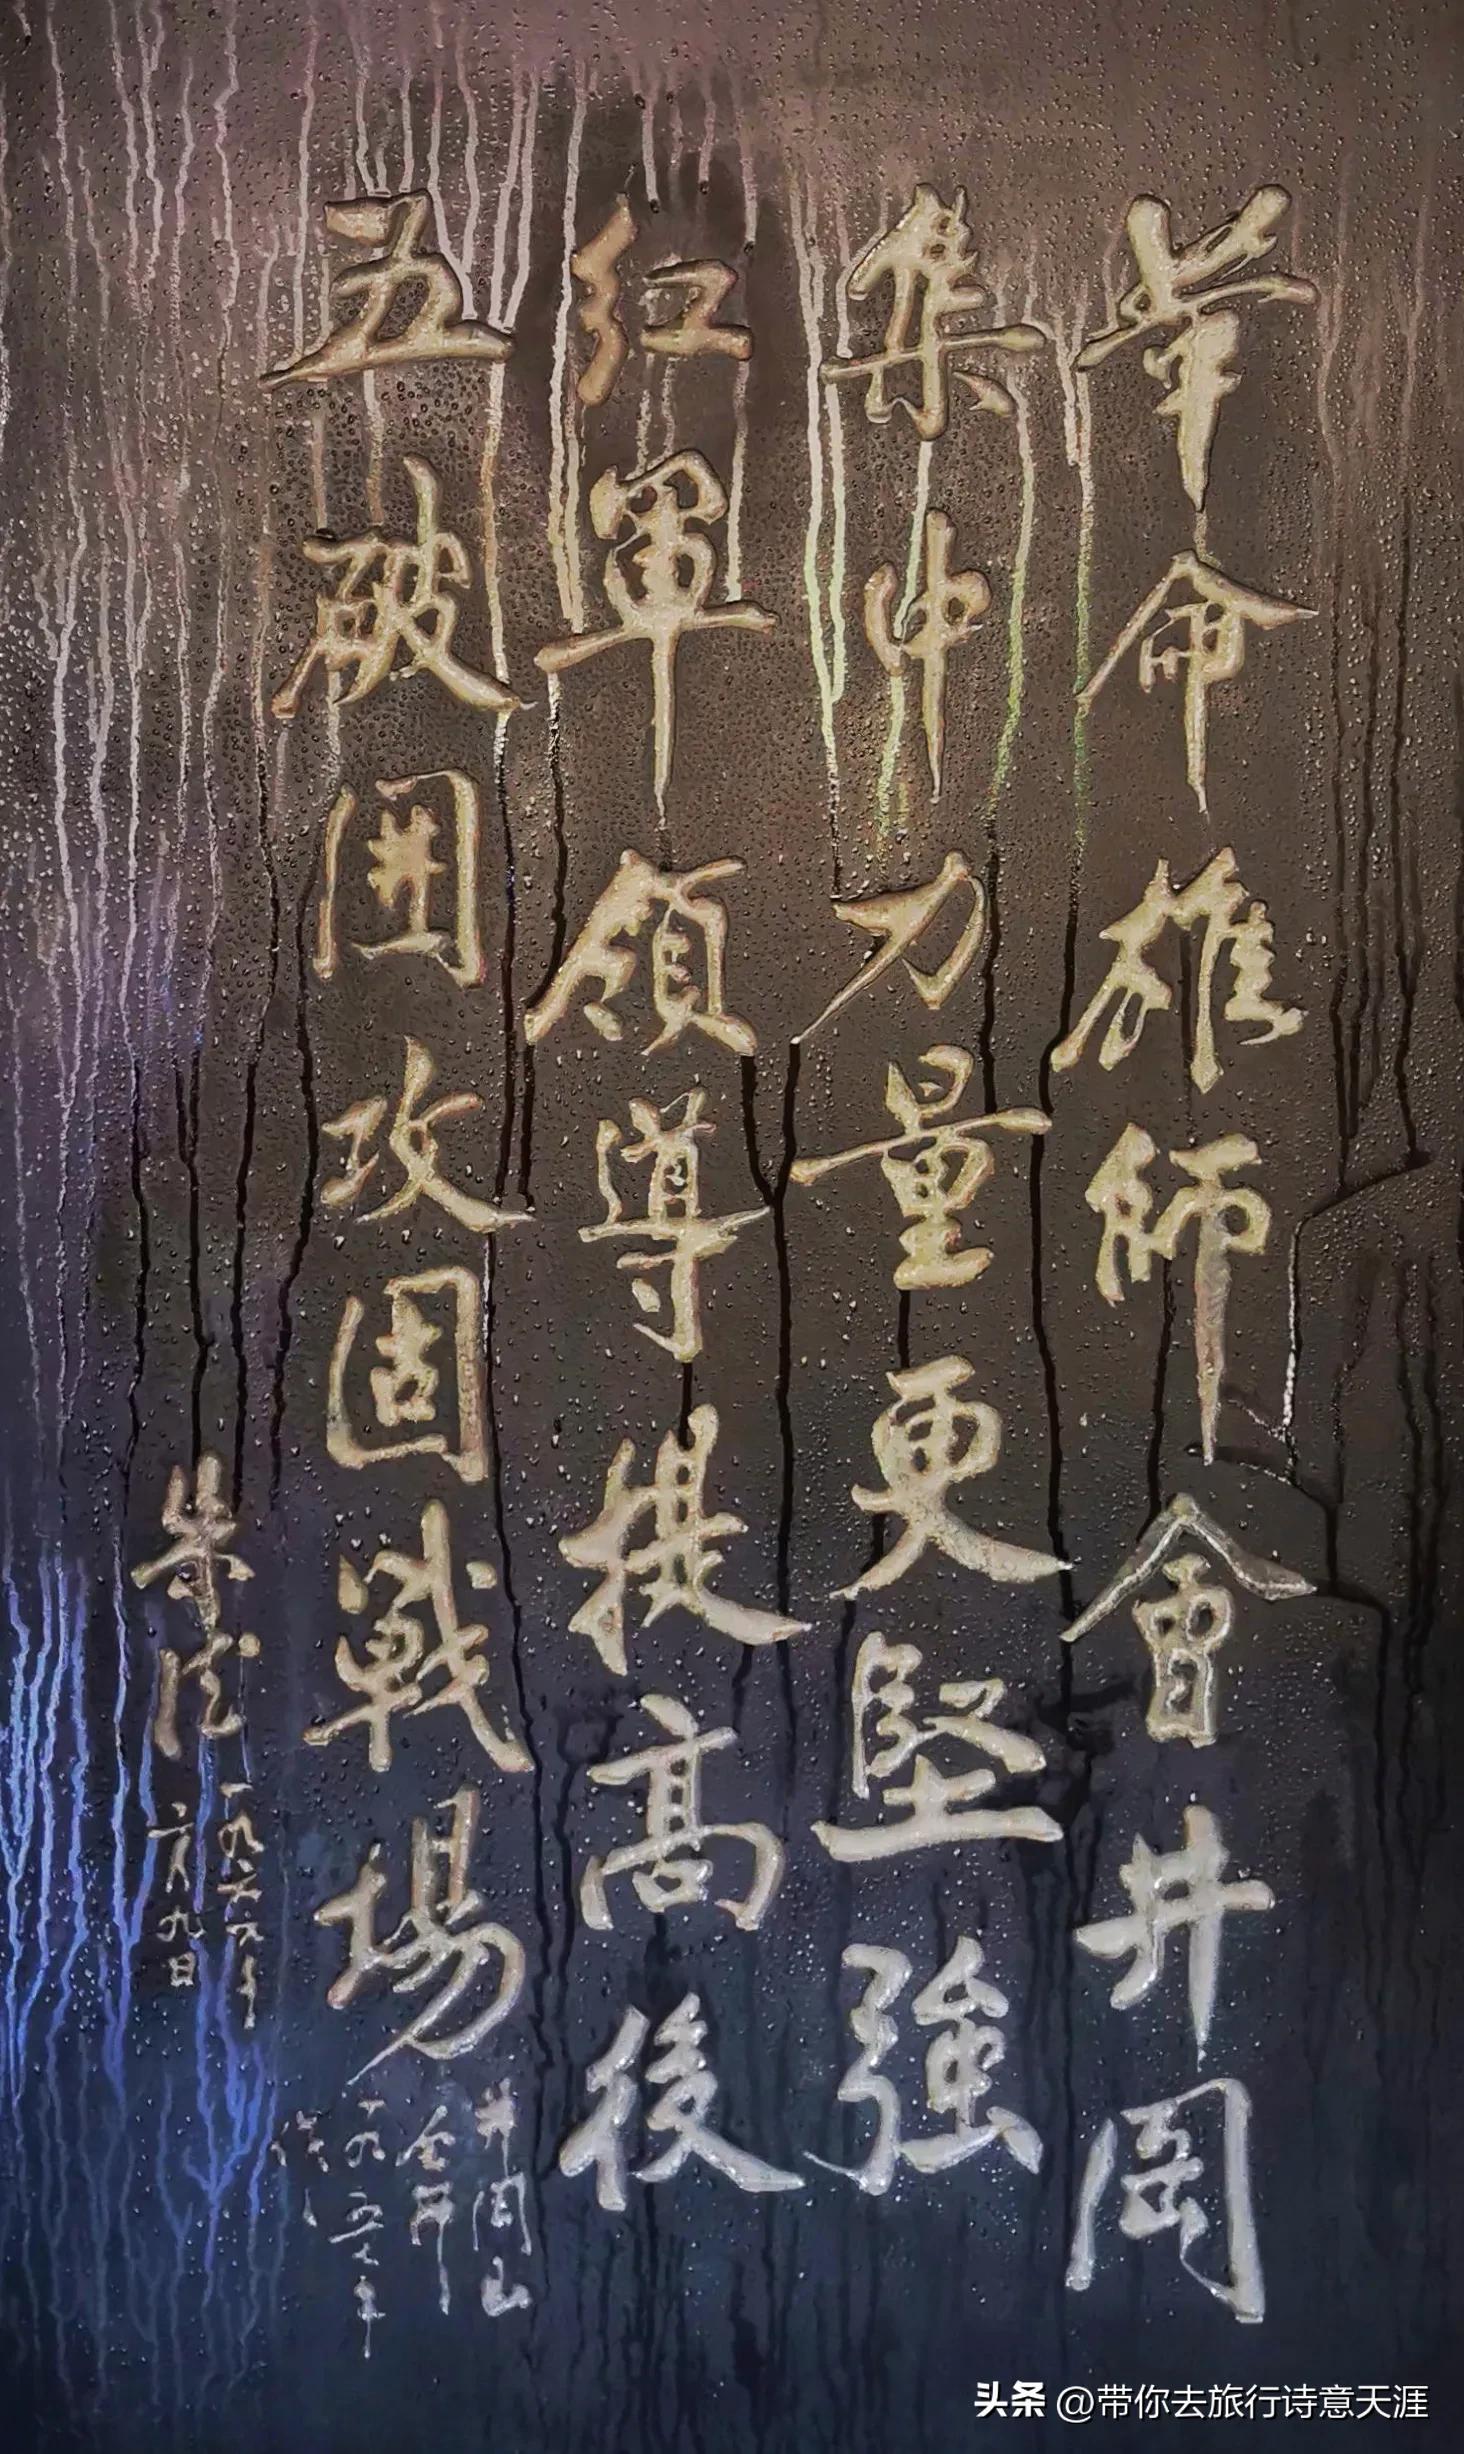 革命雄師會井岡
集中力量更堅強
红軍領導提高後
五破囲攻固戰場
井岡山
会師
一九五七年
作
朱德
一九六
月九日
头条 @带你去旅行诗意天涯